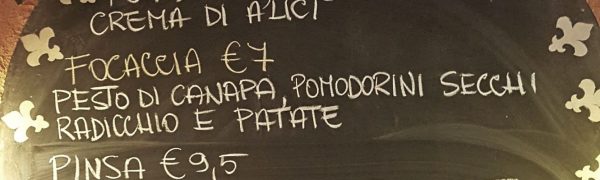 CREMA DI ALICI
FOCACCIA €7
PESTO DI CANAPA, POMODORINI SECCHI
RADICCHIO E PATATE
PINSA €9,5